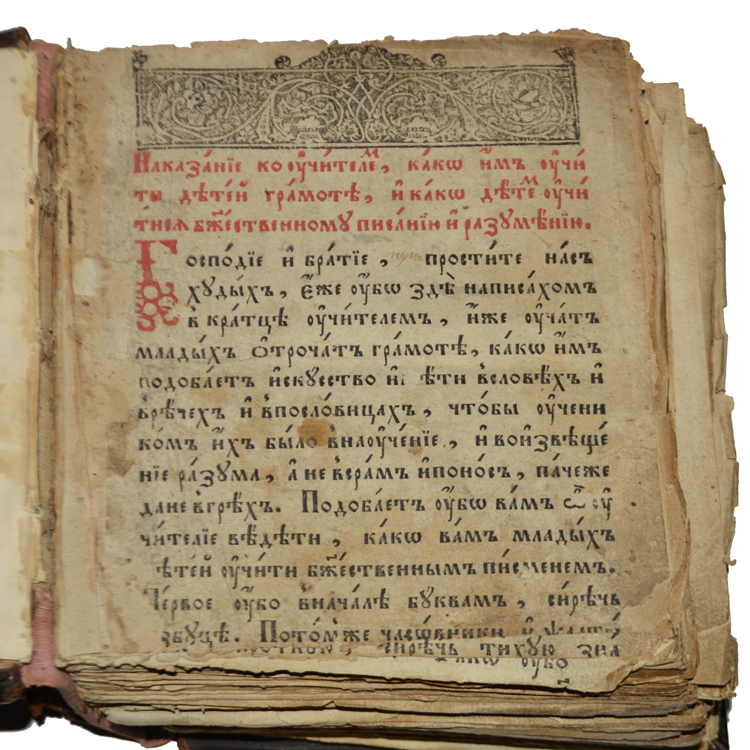 Наказа́нїе ко оу҆чи́телеⷨ, ка́кѡ и҆́мъ оу҆чи́
ти дѣте́й гра́мотѣ, и҆ ка́кѡ дѣ́теⷨ оу҆чи́
тисѧ бж҃е́ственному писа́нїю и҆ разꙋмѣ́нїю.
Госпо́дїе и҆ бра́тїе, прости́те на́съ
хꙋды́хъ, є҆́же оу҆́бѡ здѣ̀ написа́хомъ
в кра́тцѣ оу҆чи́телемъ, и҆́же оу҆ча́тъ
млады́хъ ѻ҆троча́тъ гра́мотѣ, ка́кѡ и҆́мъ
подоба́етъ и҆скꙋ́сство и҆ ѣти в словѣ́хъ и҆
в рѣ́чехъ и҆ в посло́вицахъ, что́бы оу҆чени
ко́мъ и҆́хъ бы́ло в наоу҆че́нїе, и҆ во и҆звѣще́
нїе ра́зꙋма, а҆ не в сра́мъ и҆ поно́съ, па́чеже
да не в грѣ́хъ. Подоба́етъ оу҆́бѡ ва́мъ ѿ оу҆
чи́телїе вѣ́дѣти, ка́кѡ ва́мъ млады́хъ
ѣте́й оу҆чи́ти бж҃е́ственнымъ писменемъ.
Первое оу҆́бо в нача́лѣ бꙋ́квамъ, си́рѣчь
збꙋцѣ. Пото́мже часѡ́вники и҆ ѱалты́
си́рѣчь ти́хꙋю зна
оу҆бо